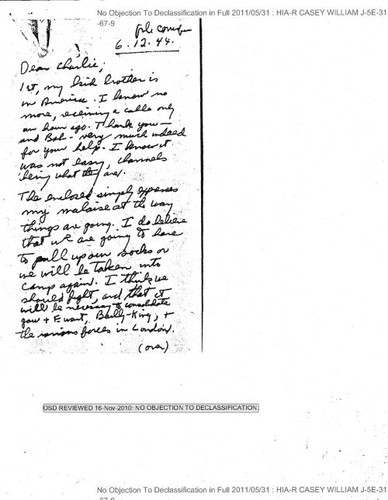 No Objection To Declassification in Full 2011/05/31 : HIA-R CASEY WILLIAM J-5E-31
-67-9
6.12.44.
Dear Charlie;
1st, my kid brother is
in America. I know no
more, receiving a cable only
an hour ago. Thank you —
and Bob - very much indeed
for your help. I know it
was not easy, channels
being what they are.
The enclosed simply expresses
my malaise at the way
things are going. I do believe
that we are going to have
to pull up our socks or
we will be taken into
camp again. I think we
should fight, and that it
will be necessary to consolidate
you + Ewart, Bailly-King, +
the various forces in London.
(over)
OSD REVIEWED 16-Nov-2010: NO OBJECTION TO DECLASSIFICATION.
No Objection To Declassification in Full 2011/05/31 : HIA-R CASEY WILLIAM J-5E-31
-67-9